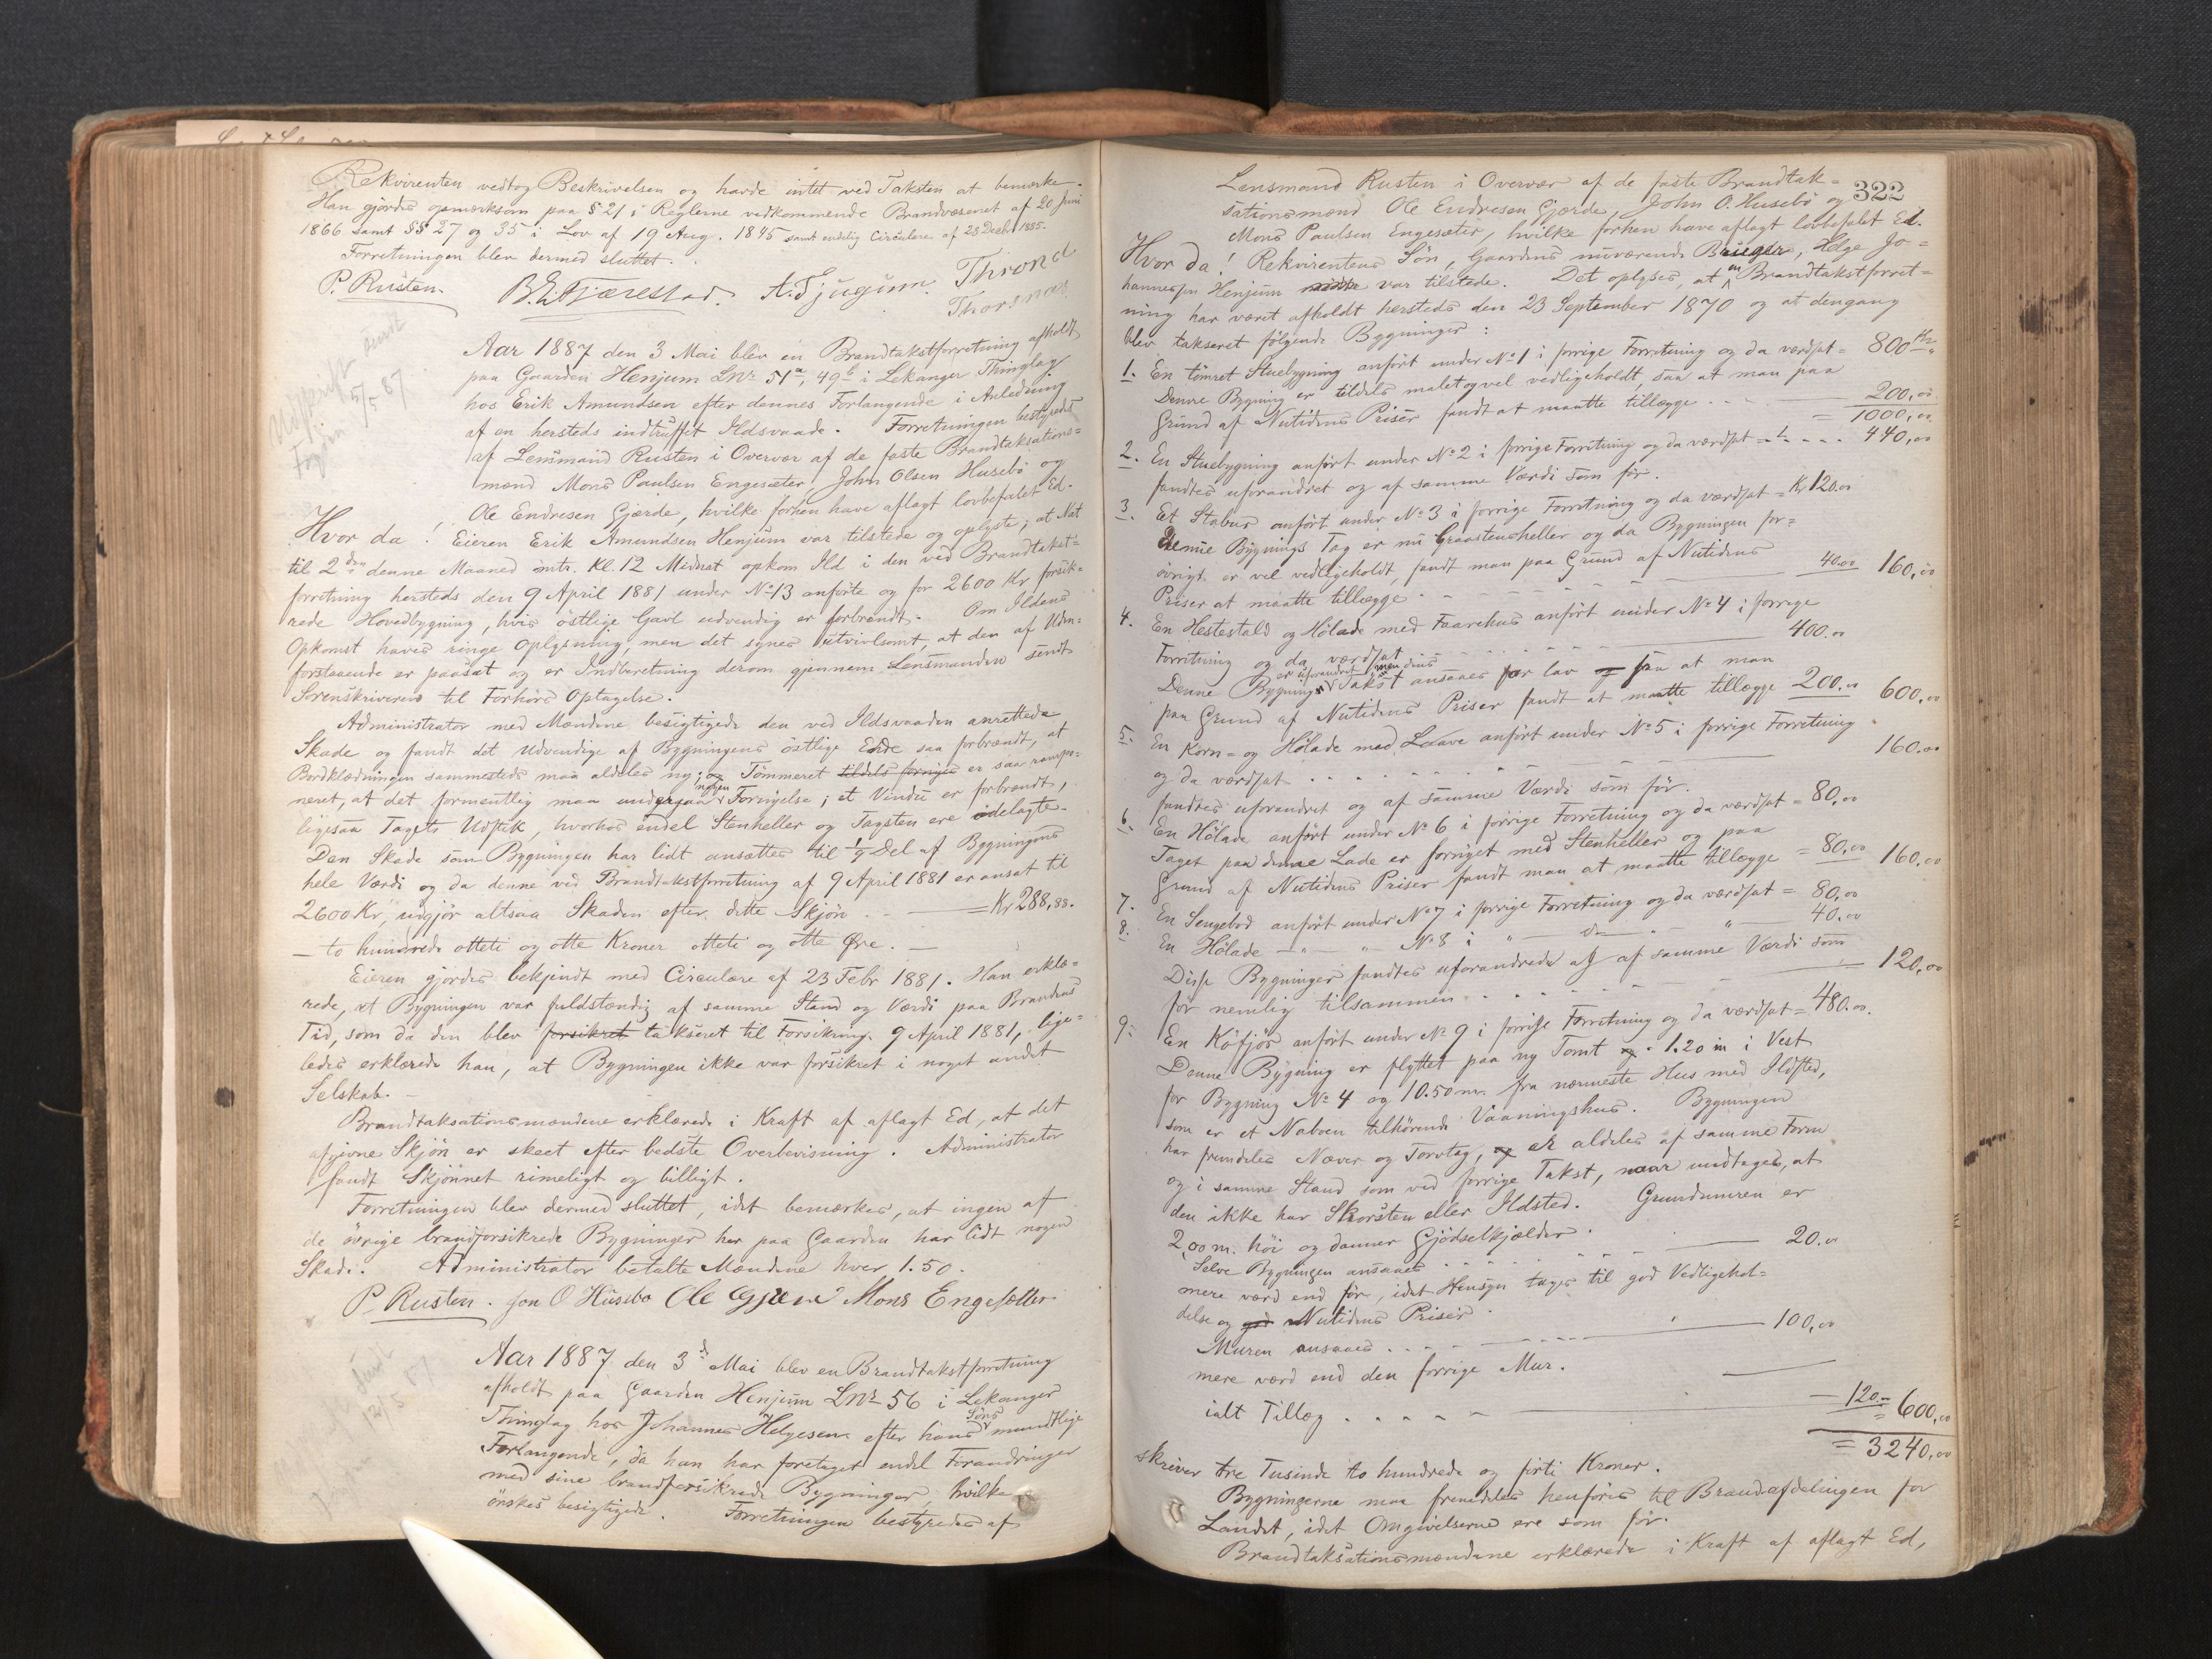 Rekvirenten vedtog Beskrivelsen og havde intet ved Taksten at bemærke.
Han gjordes opmærksom paa § 21 i Reglerne vedkommende Brandvæsenet af 20 Juni
1866 samt §§ 27 og 35 i Lov af 19 Aug. 1845 samt endelig Circulære af 23 Decbr 1885.
Forretningen blev dermed sluttet.
P. Rusten. B. E. Hjærestad. A. Njugum. Thrond
Thorsnæs
Udskrift sendt
Fogden 5/5 87
Aar 1887 den 3 Mai blev en Brandtakstforretning afholdt
paa Gaarden Henjum LNr 51a, 49b i Lekanger Thinglag
hos Erik Amundsen efter dennes Forlangende i Anledning
af en hersteds indtruffet Ildsvaade. Forretningen bestyredes
af Lensmand Rusten i Overvær af de faste Brandtaksations=
mænd Mons Paulsen Engesæter, John Olsen Husebö og
Ole Endresen Gjærde, hvilke forhen have aflagt lovbefalet Ed.
Hvor da! Eieren Erik Amundsen Henjum var tilstede og oplyste, at Nat
til 2den denne Maaned omtr. Kl. 12 Midnat opkom Ild i den ved Brandtakst=
forretning hersteds den 9 April 1881 under No 13 anförte og for 2600 Kr forsik=
rede Hovedbygning, hvis östlige Gavl udvendig er forbrændt. Om Ildens
Opkomst haves ringe Oplysning, men det synes utvivlsomt, at den af Uden=
forstaaende er paasat og er Indberetning derom gjennem Lensmanden sendt
Sorenskriveren til Forhörs Optagelse.
Administrator med Mændene besigtigede den ved Ildsvaaden anrettede
Skade og fandt det udvendige af Bygningens östlige Ende saa forbrændt, at
Bordklædningen sammesteds maa aldeles ny; og Tömmeret tildels fornyes er saa rampo=
neret, at det formentlig maa undergaa nogen Fornyelse; et Vindu er forbrændt,
ligesaa Tagets Udstik, hvorhos endel Stenheller og Tagsten ere ödelagte.
Den Skade som Bygningen har lidt ansættes til 1/9 Del af Bygningens
hele Værdi og da denne ved Brandtakstforretning af 9 April 1881 er ansat til
2600 Kr, udgjör altsaa Skaden efter dette Skjön - = Kr 288,88.
- to hundrede otteti og otte Kroner otteti og otte Øre. -
Eieren gjordes bekjendt med Circulære af 23 Febr 1881. Han erklæ=
rede, at Bygningen var fuldstændig af samme Stand og Værdi paa Brandens
Tid, som da den blev forsikret takseret til Forsikring 9 April 1881, lige=
ledes erklærede han, at Bygningen ikke var forsikret i noget andet
Selskab.
Brandtaksationsmændene erklærede i Kraft af aflagt Ed, at det
afgivne Skjön er skeet efter bedste Overbevisning. Administrator
fandt Skjönnet rimeligt og billigt.
Forretningen blev dermed sluttet, idet bemærkes, at ingen af
de övrige brandforsikrede Bygninger her paa Gaarden har lidt nogen
Skade. Administrator betalte Mændene hver 1.50.
P. Rusten. Jon O Husebo Ole Gjære Mons Engesætter
sendt
12/5 87
Aar 1887 den 3d Mai blev en Brandtakstforretning
afholdt paa Gaarden Henjum LNr 56 i Lekanger
Thinglag hos Johannes Helgesen efter hans Söns mundtlige
Forlangende, da han har foretaget endel Forandringer
med sine brandforsikrede Bygninger, hvilke
önskes besigtigede. Forretningen bestyredes af
322
Lensmand Rusten i Overvær af de faste Brandtak=
sationsmænd Ole Endresen Gjærde, John O. Husebö og
Mons Paulsen Engesæter, hvilke forhen have aflagt lovbefalet Ed.
Hvor da! Rekvirentens Sön, Gaardens nuværende Bruger, Helge Jo=
hannesen Henjum var tilstede. Det oplyses, at en Brandtakstforret=
ning har været afholdt hersteds den 23 September 1870 og at dengang
blev takseret fölgende Bygninger:
1. En tömret Stuebygning anfört under No 1 i forrige Forretning og da værdsat = 800 Kr
Denne Bygning er tildels malet og vel vedligeholdt, saa at man paa
Grund af Nutidens Priser fandt at maatte tillægge - - - 200,00
= 1000,00
2. En Stuebygning anfört under No 2 i forrige Forretning og da værdsat - - - 440,00
fandtes uforandret og af samme Værdi som för.
3. Et Stabur anfört under No 3 i forrige Forretning og da værdsat = Kr 120.00
Denne Bygnings Tag er nu Graastensheller og da Bygningen for=
övrigt er vel vedligeholdt, fandt man paa Grund af Nutidens
Priser at maatte tillægge - - - 40.00 160,00
4. En Hestestald og Hölade med Faarehus anfört under No 4 i forrige
Forretning og da værdsat - - - 400.00
Denne Bygning er uforandret men dens Takst ansaaes for lav og saa at man
paa Grund af Nutidens Priser fandt at maatte tillægge 200.00 600,00
5. En Korn= og Hölade med Laave anfört under No 5 i forrige Forretning
og da værdsat - - - 160.00
fandtes uforandret og af samme Værdi som för.
6. En Hölade anfört under No 6 i forrige Forretning og da værdsat = 80,00
Taget paa denne Lade er fornyet med Stenheller og paa
Grund af Nutidens Priser fandt man at maatte tillægge = 80,00 160,00
7. En Sengebod anfört under No 7 i forrige Forretning og da værdsat = 80,00
8. En Hölade - " - " No 8 i " - do - " - " 40.00
Disse Bygninger fandtes uforandrede og af samme Værdi som
för nemlig tilsammen - - - 120,00
9. En Köfjös anfört under No 9 i forrige Forretning og da værdsat = 480.00.
Denne Bygning er flyttet paa ny Tomt og 1.20 m i Vest
for Bygning No 4 og 10.50 m fra nærmeste Hus med Ildsted,
som er et Naboen tilhörende Vaaningshus. Bygningen
har fremdeles Næver og Torvtag, og er aldeles af samme Form
og i samme Stand som ved forrige Takst, naar undtages, at
den ikke har Skorsten eller Ildsted. Grundmuren er
2,00 m. höi og danner Gjödselkjælder.
Selve Bygningen ansaaes - - - 20.00
mere værd end för, idet Hensyn tages til god Vedligehol=
delse og god Nutidens Priser.
Muren ansaaes - - - 100,00
mere værd end den forrige Mur.
ialt Tillæg - - - 120.- = 600,00
= 3240,00
skriver tre Tusinde to hundrede og firti Kroner.
Bygningerne maa fremdeles henföres til Brandafdelingen for
Landet, idet Omgivelserne ere som för.
Brandtaksationsmændene erklærede i Kraft af aflagt Ed,